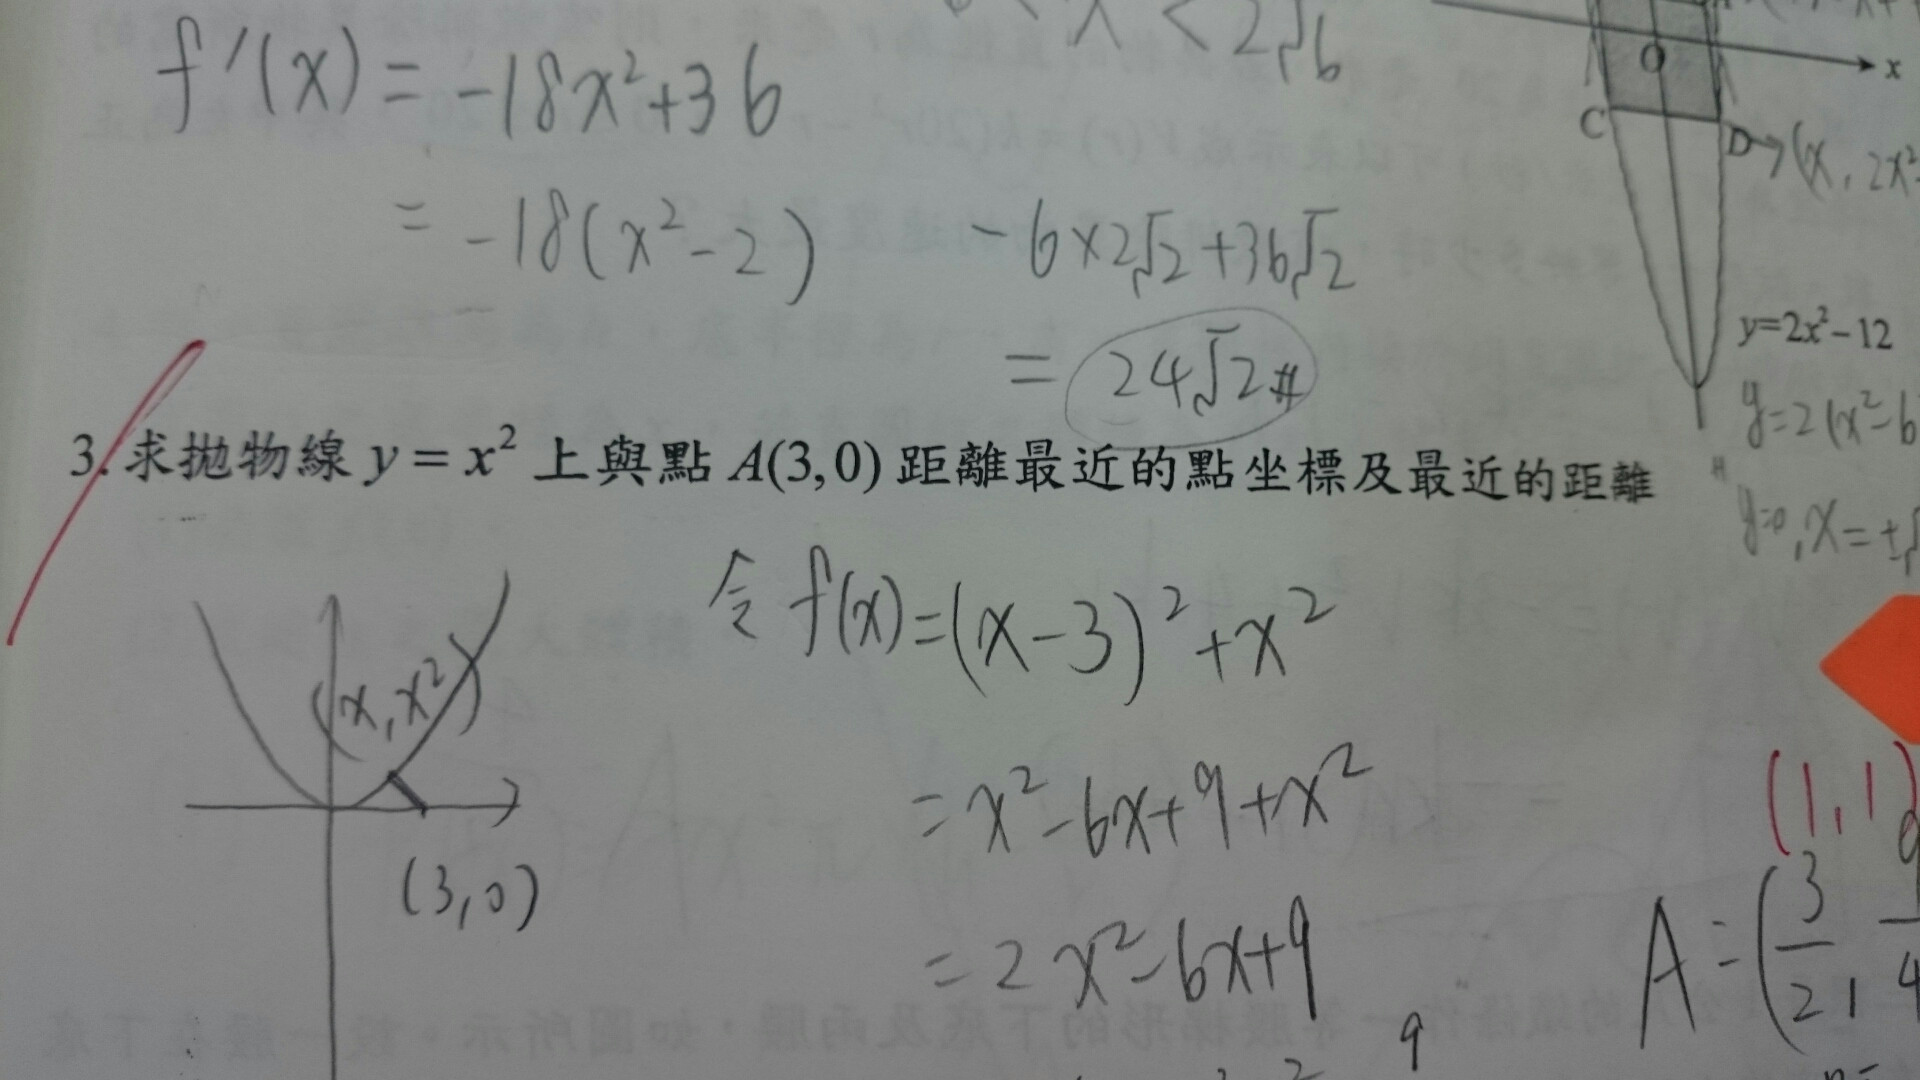 f'(x) = -18x²+36
x < 2√6
= -18(x²-2)
-6×2√2+36√2
= 24√2 #
O
x
C
D→(x, 2x²
y=2x²-12
y=2(x²-6
y=0, x=±√
3. 求拋物線 y = x² 上與點 A(3,0) 距離最近的點坐標及最近的距離
令 f(x)=(x-3)²+x²
(x,x²)
(3,0)
= x²-6x+9+x²
= 2x²-6x+9
(1,1)
A=(3/2, 9/4